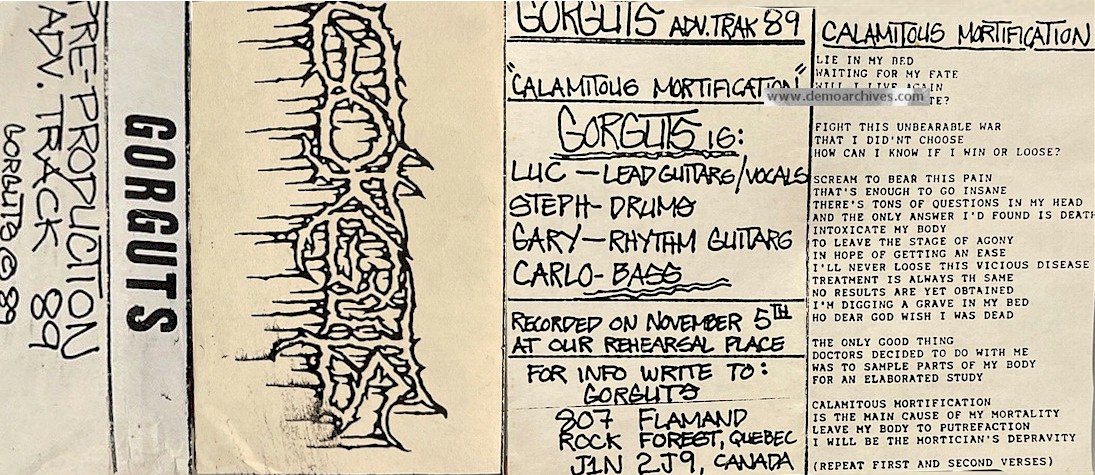 PRE-PRODUCTION
ADV. TRACK 89
GORGUTS @ 89
GORGUTS
GORGUTS
GORGUTS ADV. TRAK 89
"CALAMITOUS MORTIFICATION"
GORGUTS IS:
LUC - LEAD GUITARS/VOCALS
STEPH - DRUMS
GARY - RHYTHM GUITARS
CARLO - BASS
RECORDED ON NOVEMBER 5TH
AT OUR REHEARSAL PLACE
FOR INFO WRITE TO:
GORGUTS
807 FLAMAND
ROCK FOREST, QUEBEC
J1N 2J9, CANADA
CALAMITOUS MORTIFICATION
LIE IN MY BED
WAITING FOR MY FATE
WILL I LIVE AGAIN
www.demoarchives.com
TE?
FIGHT THIS UNBEARABLE WAR
THAT I DID'NT CHOOSE
HOW CAN I KNOW IF I WIN OR LOOSE?
SCREAM TO BEAR THIS PAIN
THAT'S ENOUGH TO GO INSANE
THERE'S TONS OF QUESTIONS IN MY HEAD
AND THE ONLY ANSWER I'D FOUND IS DEATH
INTOXICATE MY BODY
TO LEAVE THE STAGE OF AGONY
IN HOPE OF GETTING AN EASE
I'LL NEVER LOOSE THIS VICIOUS DISEASE
TREATMENT IS ALWAYS TH SAME
NO RESULTS ARE YET OBTAINED
I'M DIGGING A GRAVE IN MY BED
HO DEAR GOD WISH I WAS DEAD
THE ONLY GOOD THING
DOCTORS DECIDED TO DO WITH ME
WAS TO SAMPLE PARTS OF MY BODY
FOR AN ELABORATED STUDY
CALAMITOUS MORTIFICATION
IS THE MAIN CAUSE OF MY MORTALITY
LEAVE MY BODY TO PUTREFACTION
I WILL BE THE MORTICIAN'S DEPRAVITY
(REPEAT FIRST AND SECOND VERSES)